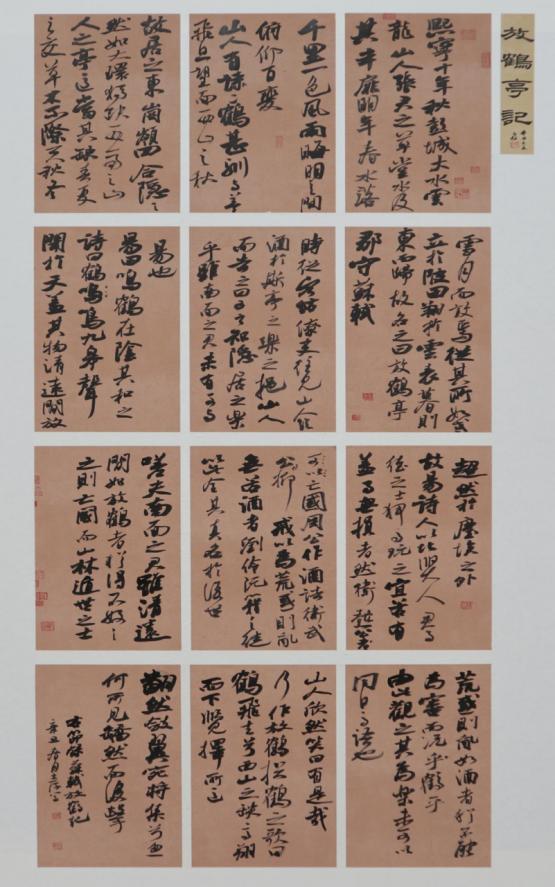 放鶴亭記
熙寧十年秋彭城大水雲
龍山人張君之草堂水及
其半扉明年春水落
千里一色風雨晦明之間
俯仰百變
山人有二鶴甚馴而善
飛旦望而西山之秋
故居之東崗嶺四合隱之
然如大環獨缺其一面之山
人之亭適當其缺春夏
之交草木際天秋冬
雪月而放焉縱其所如
立於陂田翔於雲表暮則
東而歸故名之曰放鶴亭
郡守蘇軾
時從賓佐僚吏往見山人飲
酒於斯亭之樂之挹山人
而告之曰子知隱居之樂
乎雖南面之君未有可與
易也
易曰鳴鶴在陰其和之
詩曰鶴鳴于九皋聲
聞於天蓋其物清遠閒放
超然於塵埃之外
故易詩人以比賢人君子
德之士狎而玩之宜若有
益而無損者然衛懿公好
可以亡國周公作酒誥衛武
公抑戒以為荒惑則亂
無若酒者劉伶阮籍之徒
以此全其真名於後世
嗟夫南面之君雖清遠
閒如放鶴者猶得不好之
之則亡國而山林遯世之士
荒惑則亂如酒者猶不能
為害而況乎鶴乎
由此觀之其為樂未可以
同日而語也
山人欣然笑曰有是哉
乃作放鶴招鶴之歌曰
鶴飛去兮西山之缺高翔
而下覽擇所適
翻然斂翼宛將集兮忽
何所見矯然而復擊
右節錄蘇軾放鶴記
辛丑春月